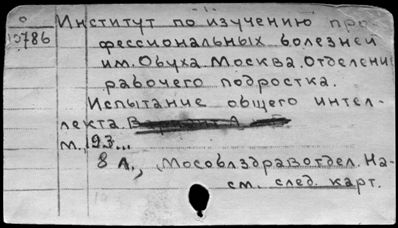 О
10786
Институт по изучению про
фессиональных болезней
им. Обуха. Москва. Отделение
рабочего подростка.
Испытание общего интел-
лекта. В
м., 193...
8 л., Мособлздравотдел. На-
см. след. карт.